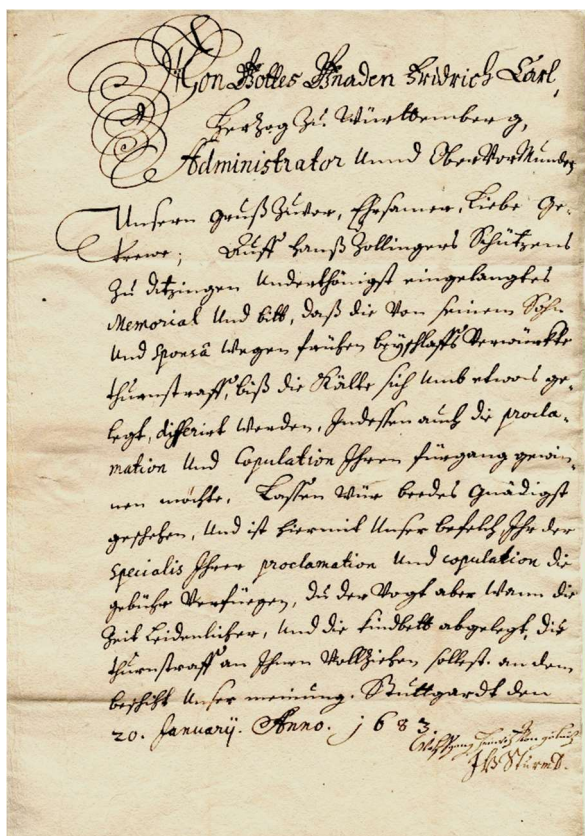 Von Gottes Gnaden Fridrich Carl,
Herzog zu Württemberg,
Administrator Unnd OberVorMunder
Unsern gruß zuvor, Ehrsamer, Liebe Ge-
trewe; Auff Hanß Zollingers Schützens
zu Ditzingen Underthönigst eingelangtes
Memorial Und bitt, daß die Von seinem Sohn
Und Sponsâ Wegen frühen beyschlaffs Verwürckte
thurnstraff, biß die Kälte sich umb etwas ge-
legt, differirt werden, Indessen auch die procla-
mation Und Copulation Ihren fürgang gewin-
nen möchte, Lassen Wür beedes Gnädigst
geschehen, Und ist hiermit Unser befelch, Ihr der
Specialis Ihrer proclamation Und copulation die
gebühr Verfüegen, du der Vogt aber wann die
Zeit Leidenlicher, Und die kindbett abgelegt, die
thurnstraff an Ihnen Vollziehen sollest. an dem
beschiht Unser meinung. Stuttgardt den
20. Januarij. Anno. 1683.
Sturm D.